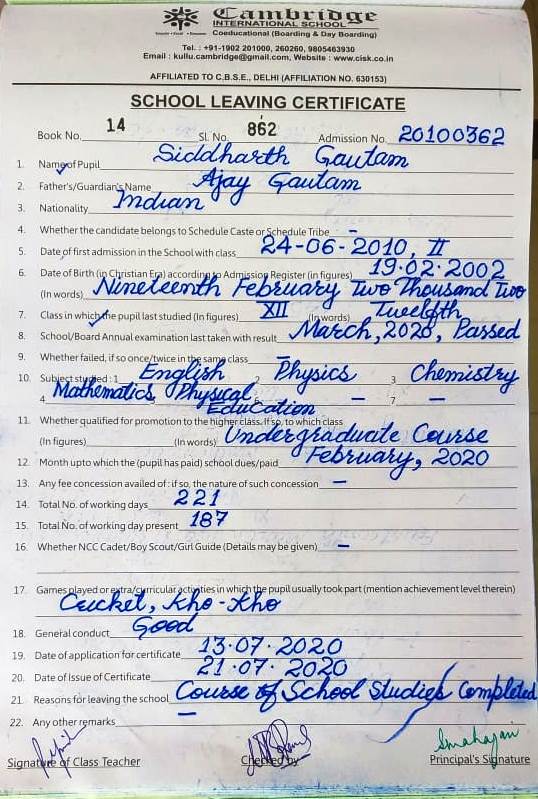 Cambridge
INTERNATIONAL SCHOOL
Coeducational (Boarding & Day Boarding)
Tel. : +91-1902 201000, 260260, 9805463930
Email : kullu.cambridge@gmail.com, Website : www.cisk.co.in
AFFILIATED TO C.B.S.E., DELHI (AFFILIATION NO. 630153)
SCHOOL LEAVING CERTIFICATE
Book No. 14 Sl. No. 862 Admission No. 20100362
1. Name of Pupil Siddharth Gautam
2. Father's/Guardian's Name Ajay Gautam
3. Nationality Indian
4. Whether the candidate belongs to Schedule Caste or Schedule Tribe -
5. Date of first admission in the School with class 24-06-2010, II
6. Date of Birth (in Christian Era) according to Admission Register (in figures) 19.02.2002
(In words) Nineteenth February Two Thousand Two
7. Class in which the pupil last studied (In figures) XII (In words) Twelfth
8. School/Board Annual examination last taken with result March, 2020, Passed
9. Whether failed, if so once/twice in the same class -
10. Subject studied : 1 English 2 Physics 3 Chemistry
4 Mathematics 5 Physical Education 6 - 7 -
11. Whether qualified for promotion to the higher class. If so, to which class
(In figures) (In words) Undergraduate Course
12. Month upto which the (pupil has paid) school dues/paid February, 2020
13. Any fee concession availed of : if so, the nature of such concession -
14. Total No. of working days 221
15. Total No. of working day present 187
16. Whether NCC Cadet/Boy Scout/Girl Guide (Details may be given) -
17. Games played or extra/curricular activities in which the pupil usually took part (mention achievement level therein)
Cricket, Kho-Kho
18. General conduct Good
19. Date of application for certificate 13.07.2020
20. Date of Issue of Certificate 21.07.2020
21. Reasons for leaving the school Course of School Studies Completed
22. Any other remarks -
Smahajan
Signature of Class Teacher Checked by Principal's Signature